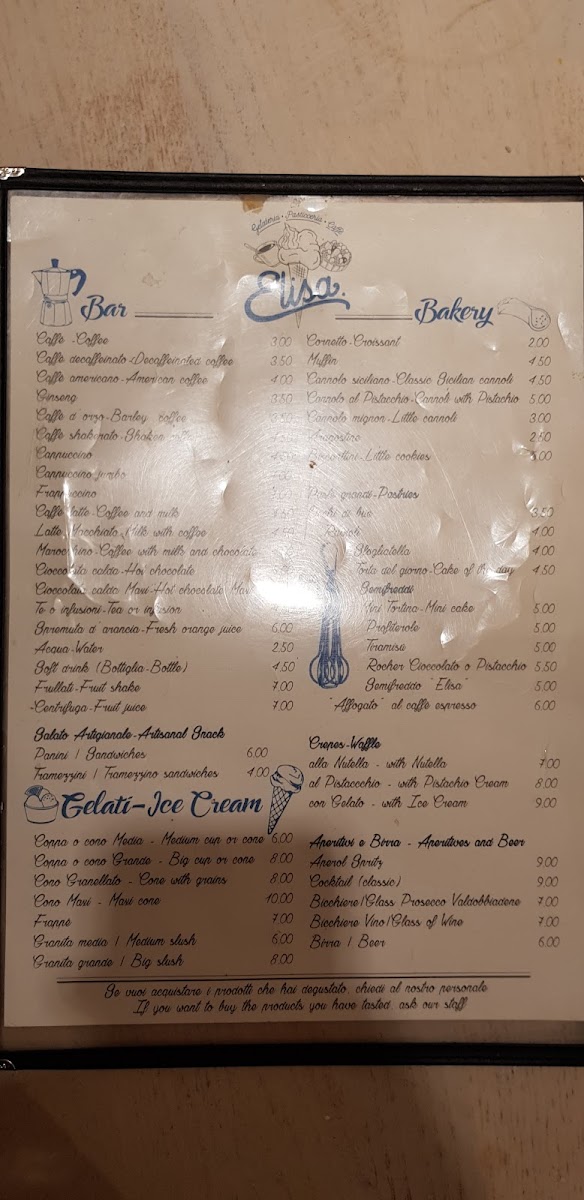 Gelateria · Pasticceria · Caffè
Elisa
Bar
Caffè - Coffee 3.00
Caffè decaffeinato - Decaffeinated coffee 3.50
Caffè americano - American coffee 4.00
Ginseng 3.50
Caffè d'orzo - Barley coffee
Caffè shakerato - Shaken coffee
Cappuccino
Cappuccino jumbo
Frappuccino
Caffè latte - Coffee and milk
Latte Macchiato - Milk with coffee
Marocchino - Coffee with milk and chocolate
Cioccolata calda - Hot chocolate
Cioccolata calda Maxi - Hot chocolate Maxi
Te o infusioni - Tea or infusion
Spremuta d'arancia - Fresh orange juice 6.00
Acqua - Water 2.50
Soft drink (Bottiglia - Bottle) 4.50
Frullati - Fruit shake 7.00
Centrifuga - Fruit juice 7.00
Salato Artigianale - Artisanal Snack
Panini / Sandwiches 6.00
Tramezzini / Tramezzino sandwiches 4.00
Gelati - Ice Cream
Coppa o cono Media - Medium cup or cone 6.00
Coppa o cono Grande - Big cup or cone 8.00
Cono Granellato - Cone with grains 8.00
Cono Maxi - Maxi cone 10.00
Frappè 7.00
Granita media / Medium slush 6.00
Granita grande / Big slush 8.00
Bakery
Cornetto - Croissant 2.00
Muffin 4.50
Cannolo siciliano - Classic Sicilian cannoli 4.50
Cannolo al Pistacchio - Cannoli with Pistachio 5.00
Cannolo mignon - Little cannoli 3.00
Aragostine 2.50
Biscottini - Little cookies
Paste grandi - Pastries
3.50
4.00
Sfogliatella 4.00
Torta del giorno - Cake of the day 4.50
Semifreddi
Mini Tortina - Mini cake 5.00
Profiterole 5.00
Tiramisù 5.00
Rocher Cioccolato o Pistacchio 5.50
Semifreddo "Elisa" 5.00
"Affogato" al caffè espresso 6.00
Crepes - Waffle
alla Nutella - with Nutella 7.00
al Pistaccchio - with Pistachio Cream 8.00
con Gelato - with Ice Cream 9.00
Aperitivi e Birra - Aperitives and Beer
Aperol Spritz 9.00
Cocktail (classic) 9.00
Bicchiere/Glass Prosecco Valdobbiadene 7.00
Bicchiere Vino/Glass of Wine 7.00
Birra / Beer 6.00
Se vuoi acquistare i prodotti che hai degustato, chiedi al nostro personale
If you want to buy the products you have tasted, ask our staff